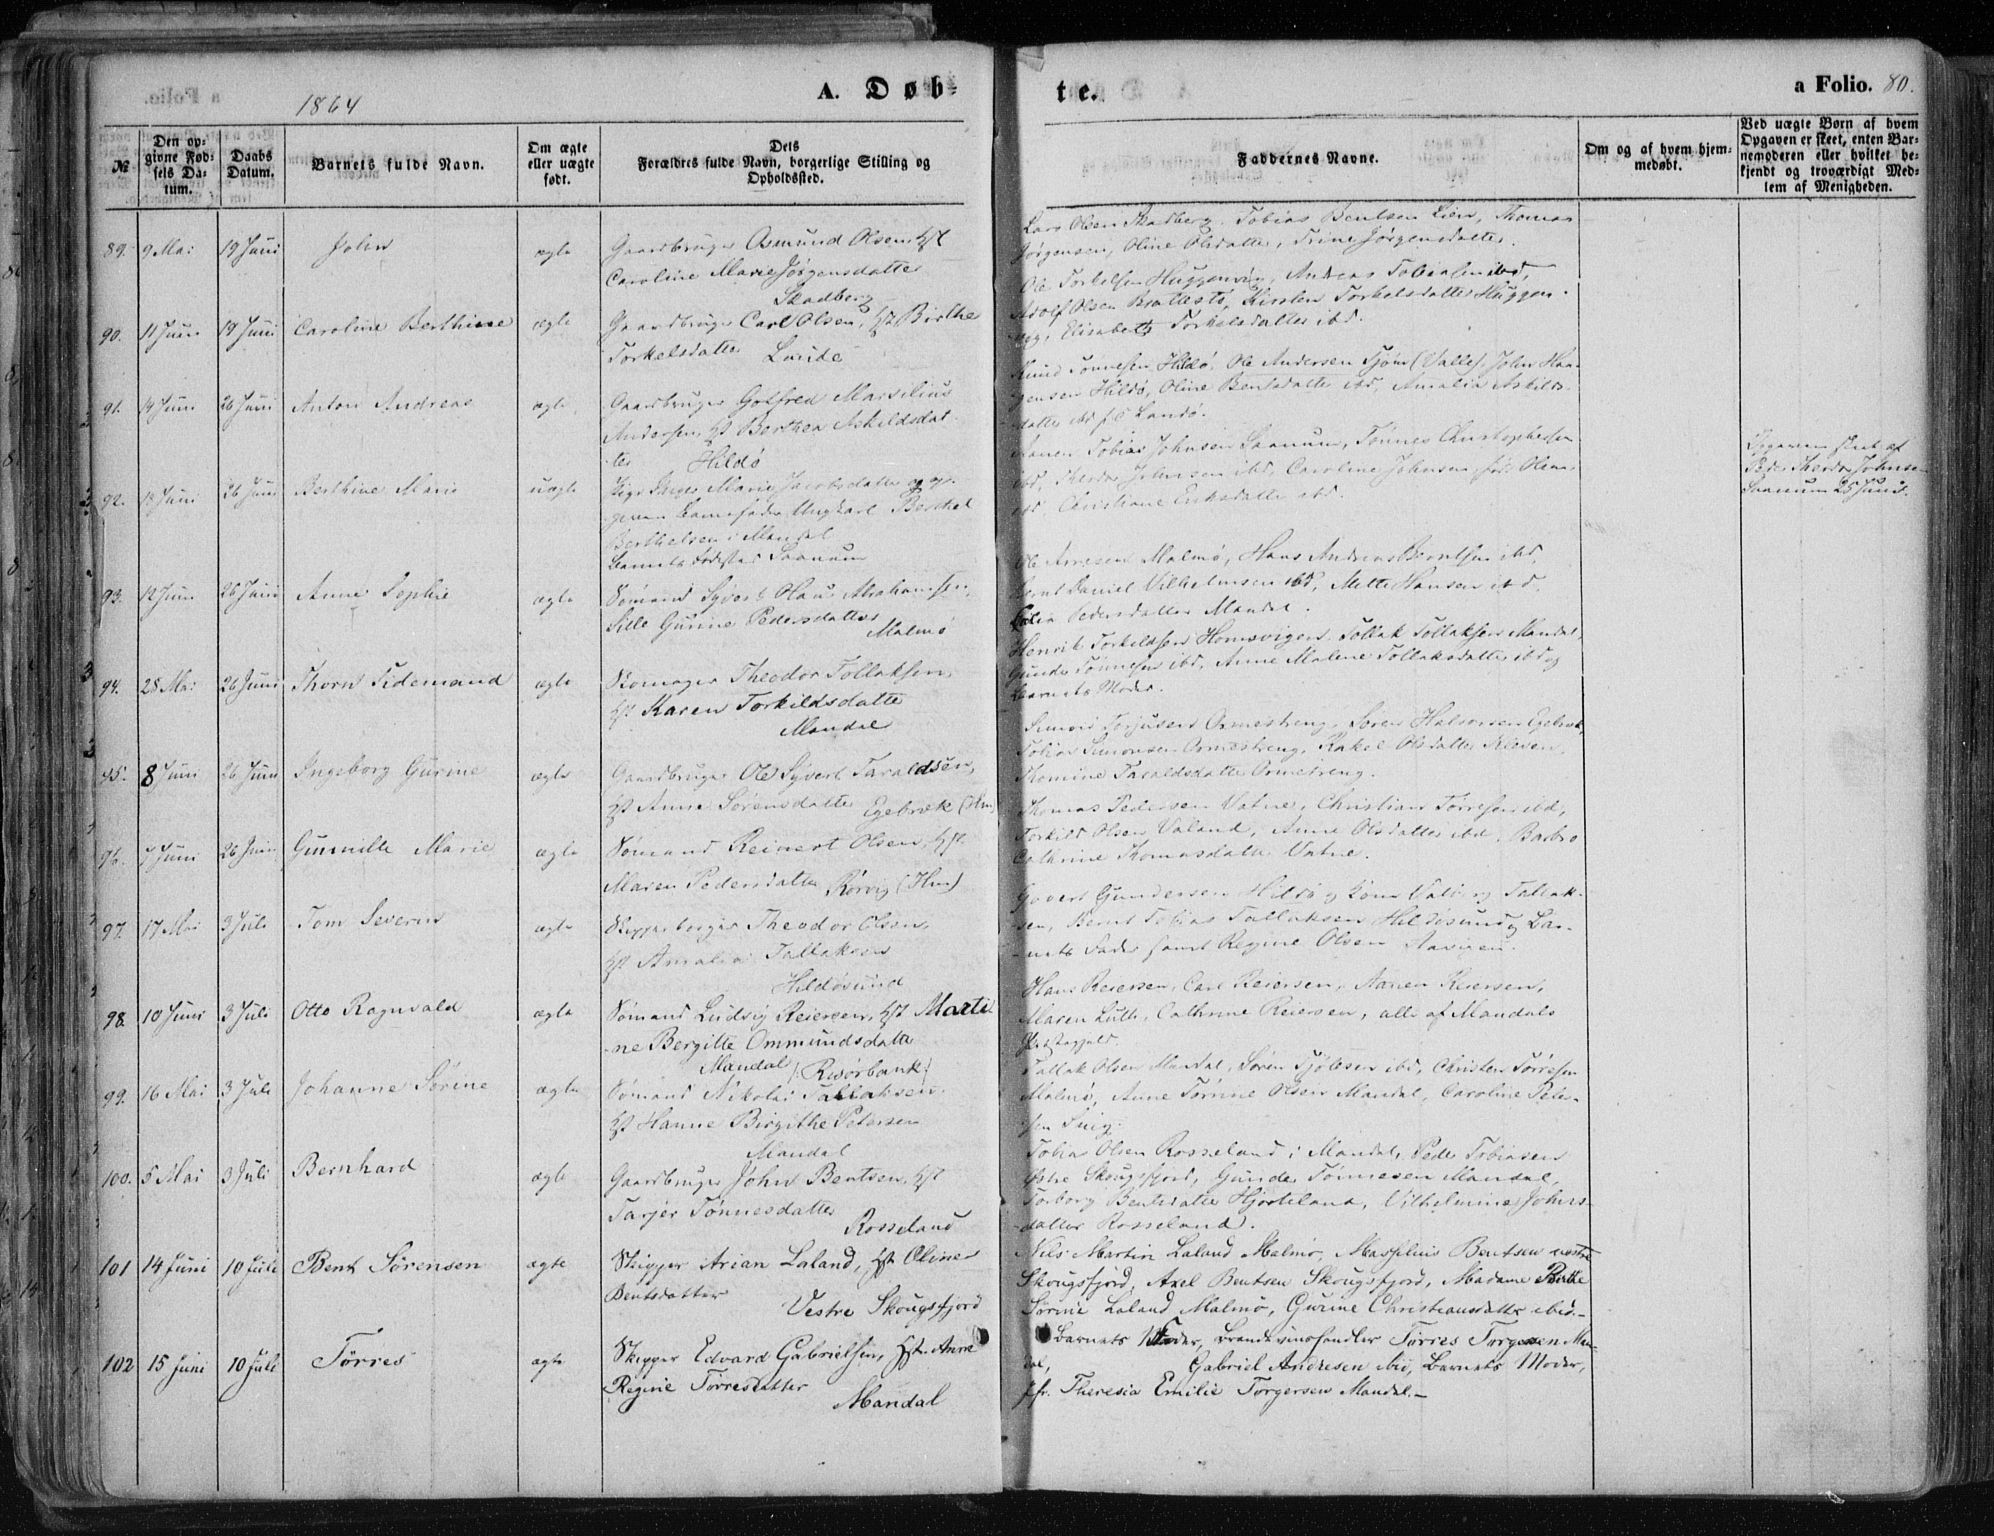 1864
A. Døb-
te.
a Folio. 80.
№
Den op-
givne Fød-
sels Da-
tum.
Daabs
Datum.
Barnets fulde Navn.
Om ægte
eller uægte
født.
Dets
Forældres fulde Navn, borgerlige Stilling og
Opholdssted.
Faddernes Navne.
Om og af hvem hjem-
medøbt.
Ved uægte Børn af hvem
Opgaven er skeet, enten Bar-
nemoderen eller hvilket be-
kjendt og troværdigt Med-
lem af Menigheden.
89. 9 Mai 19 Juni John ægte Gaardbruger Osmund Olsen, Hst
Caroline Marie Jørgensdatter
Skadberg
Lars Olsen Skadberg, Tobias Bentsen Lien, Thomas
Jørgensen, Oline Olsdatter, Trine Jørgensdatter.
90. 11 Juni 19 Juni Caroline Berthine ægte Gaardbruger Carl Olsen, Hst Birthe
Torkelsdatter Lande
Ole Torkelsen Huggenvig, Andreas Tobiassen ibd,
Adolf Olsen Brattestø, Kirsten Torkelsdatter Huggen-
vig, Elisabeth Torkelsdatter ibd.
91. 19 Juni 26 Juni Anton Andreas ægte Gaardbruger Gotfred Marselius
Andersen, Hst Berthea Askildsdat-
ter Hildø
Knud Tønnesen Hildø, Ole Andersen (Valle), John Haa-
gensen Hildø, Oline Bentsdatter ibd, Amalia Askilds-
datter ibd
92. 13 Juni 26 Juni Berthine Marie uægte Pige Inger Marie Jacobsdatter og op-
given Barnefader Ungkarl Berthel
Berthelsen i Mandal
Barnets Fødested Saanum
Aanen Tobias Johnsen Saanum, Tønnes Christophersen
ibd, Theodor Johnsen ibd, Caroline Johnsen
ibd, Christiane Eriksdatter ibd.
Opgaven skeet af
Theodor Johnsen
Saanum 25 Juni.
93. 12 Juni 26 Juni Anne Sophie ægte Sømand Syvert Olaus Abrahamsen,
Sille Gurine Pedersdatter
Malmø
Ole Arnesen Malmø, Hans Andreas Berntsen ibd,
Bernt Daniel Vilhelmsen ibd, Mette Hansen ibd,
Pedersdatter Mandal.
94. 28 Mai 26 Juni Thorn Tidemand ægte Skomager Theodor Tollaksen,
Hst Karen Torkildsdatter
Mandal
Henrik Torkildsen Homsvigen, Tollak Tollaksen Mandal,
Gunder Tønnesen ibd, Anne Malene Tollaksdatter ibd og
Barnets Moder.
95. 8 Juni 26 Juni Ingeborg Gurine ægte Gaardbruger Ole Syvert Taraldsen,
Hst Anne Sørensdatter Egebræk (Hm)
Simon Torjusen Ormestreng, Søren Halvorsen Egebræk,
Tobias Simonsen Ormestreng, Rakel Olsdatter Kleven,
Tomine Taraldsdatter Ormestreng.
96. 7 Juni 26 Juni Gunnille Marie ægte Sømand Reinert Olsen, Hst
Maren Pedersdatter Rørvig (Hm)
Thomas Pedersen Vatne, Christian Tørresen ibd,
Torkild Olsen Valand, Anne Olsdatter ibd, Barbro
Cathrine Thomasdatter Vatne.
97. 17 Mai 3 Juli Tom Severin ægte Skipperborger Theodor Olsen,
Hst Amalia Tallaksen
Hildøsund
Govert Gundersen Hildø Tallak-
sen, Bernt Tobias Tallaksen Hildøsund, Bar-
nets Fader samt Regine Olsen
98. 10 Juni 3 Juli Otto Ragnvald ægte Sømand Ludvig Reiersen, Hst Marti-
ne Bergitte Ommundsdatter
Mandal /: Risørbank :/
Hans Reiersen, Carl Reiersen, Aanen Reiersen,
Maren Luth, Cathrine Reiersen, alle af Mandals
Præstegjeld.
99. 16 Mai 3 Juli Johanne Sørine ægte Sømand Nikolai Tallaksen
Hst Hanne Birgithe Petersen
Mandal
Tallak Olsen Mandal, Søren ibd, Christen Tørresen
Malmø, Anne Tørrine Olsen Mandal, Caroline Peter-
sen
100. 5 Mai 3 Juli Bernhard ægte Gaardbruger John Bentsen, Hst
Tarjer Tønnesdatter
Rosseland
Tobias Olsen Rosseland i Mandal, Peder Tobiasen
østre Skougsfjord, Gunder Tønnesen Mandal,
Torborg Bentsdatter Hjorteland, Vilhelmine Johns-
datter Rosseland.
101 14 Juni 10 Juli Bent Sørensen ægte Skipper Arian Laland, Hst Oline
Bentsdatter
Vestre Skougsfjord
Nils Martin Laland Malmø, Massilius Bentsen vestre
Skougsfjord, Axel Bentsen Skougsfjord, Madame Birthe
Sørine Laland Malmø, Gurine Christiansdatter ibid.—
102 15 Juni 10 Juli Tørres ægte Skipper Edvard Gabrielsen, Hst. Anne
Regine Tørresdatter
Mandal
Barnets Fader, Brændevinshandler Tørres Torgersen Man-
dal, Gabriel Andresen ibid, Barnets Moder,
Jfr. Theresia Emilie Torgersen Mandal.—